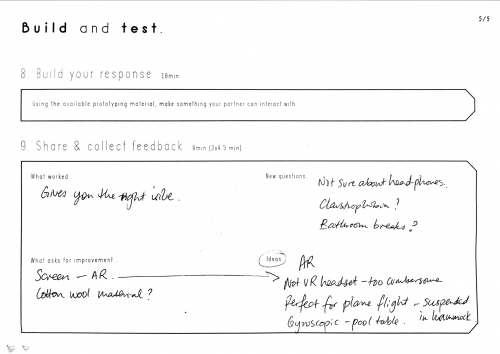 5/5
Build and test.
8 Build your response 10min
Using the available prototyping material, make something your partner can interact with.
9 Share & collect feedback 9min (2x4.5 min)
What worked.
Gives you the right vibe.
New questions.
Not sure about headphones.
Claustrophobia?
Bathroom breaks?
What asks for improvement.
Screen – AR.
Cotton wool material?
Ideas
AR
Not VR headset – too cumbersome
Perfect for plane flight – suspended
in hammock
Gyroscopic – pool table.